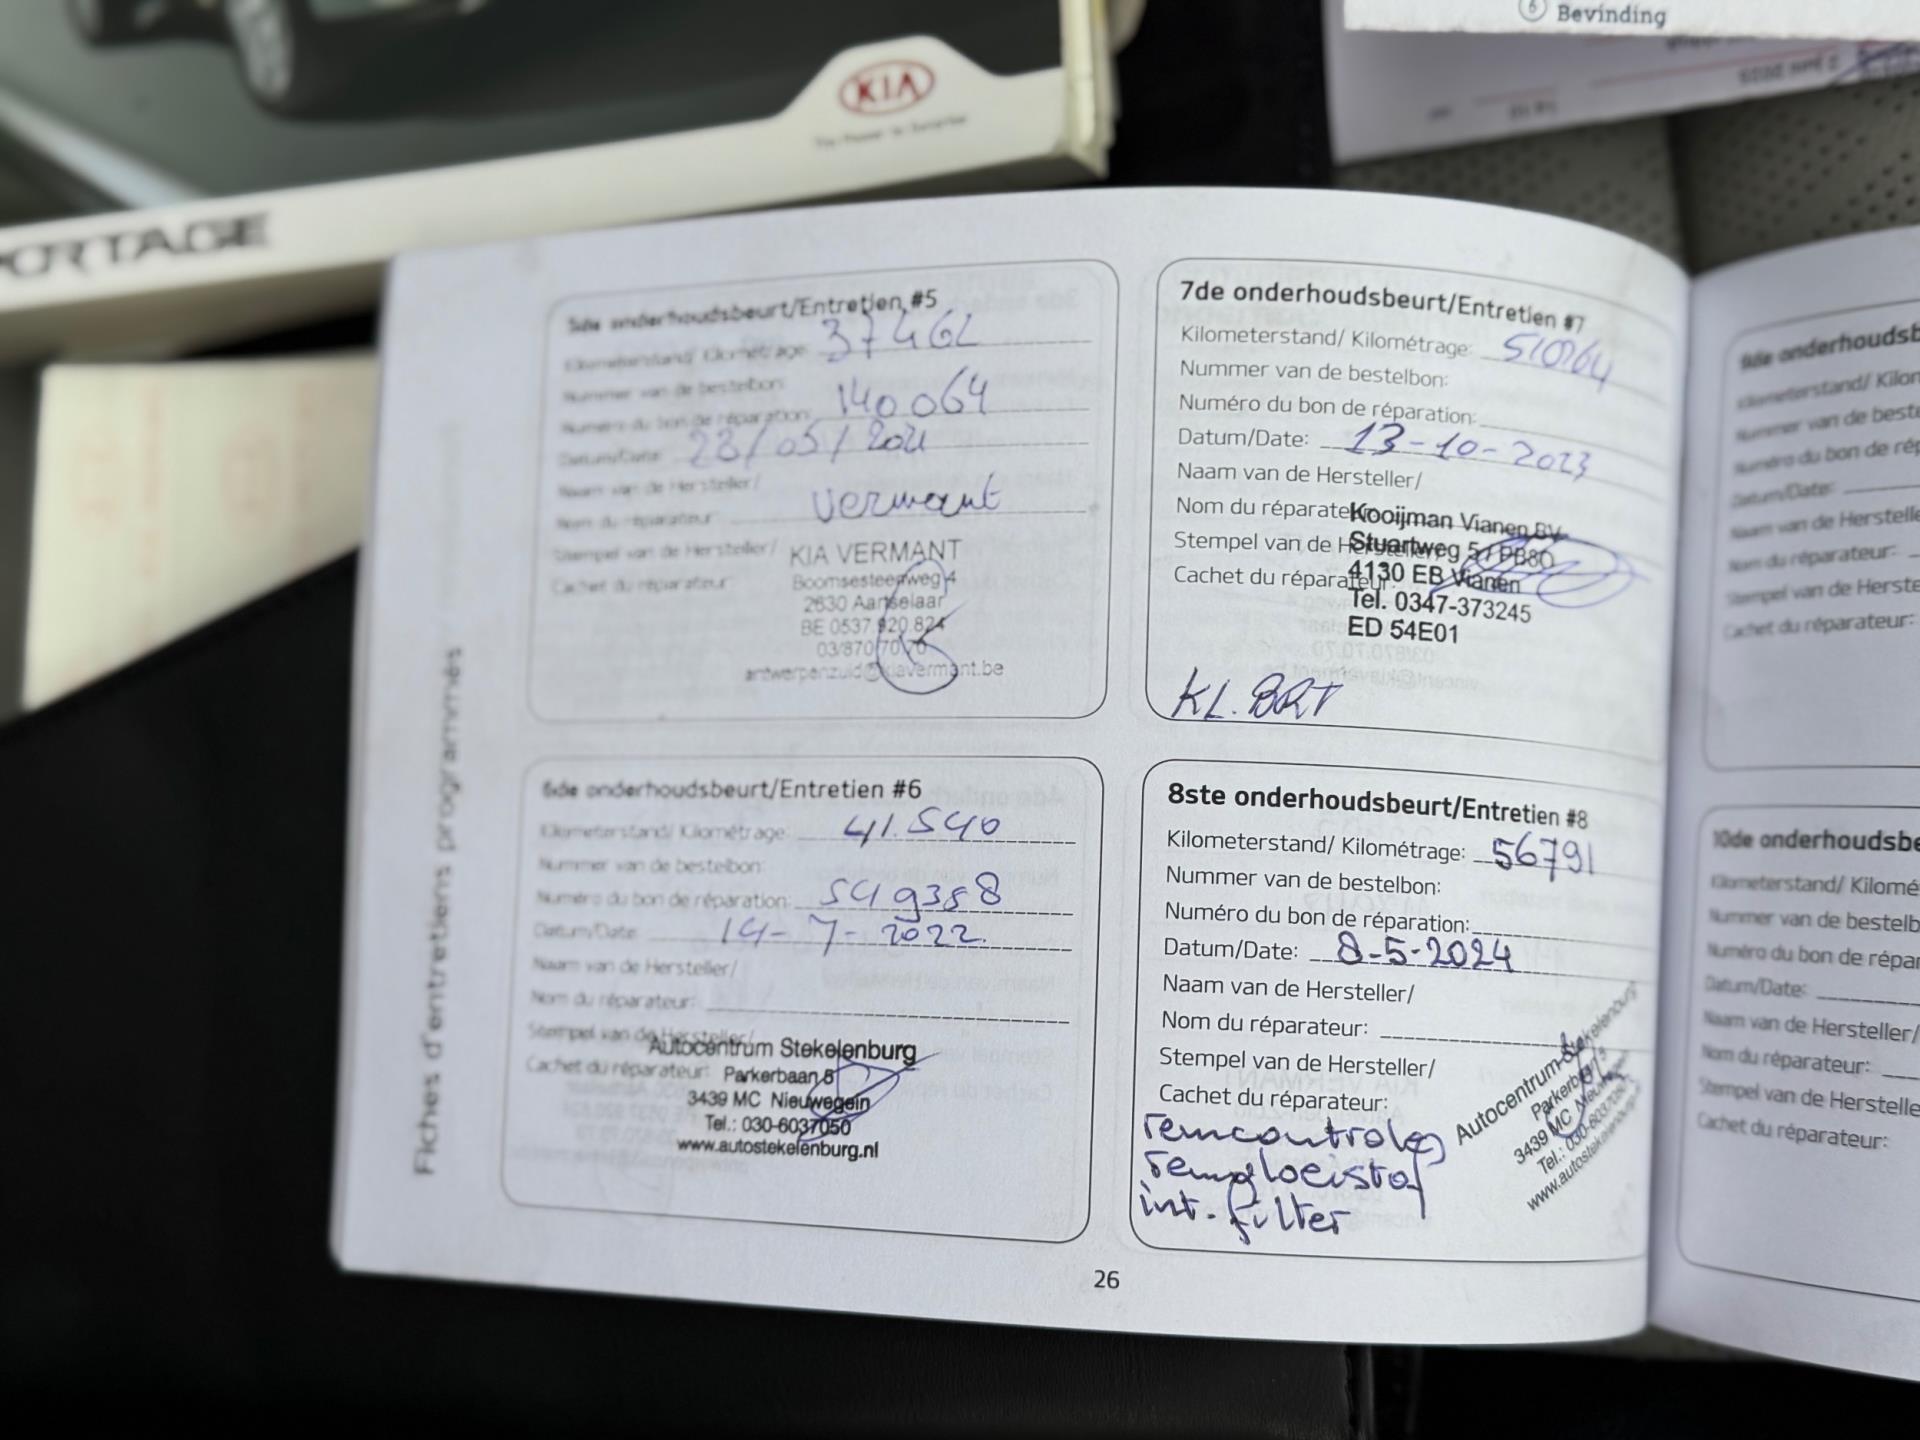 KIA
The Power to Surprise
PORTAGE
6 Bevinding
Fiches d'entretiens programmés
5de onderhoudsbeurt/Entretien #5
Kilometerstand/ Kilométrage: 37462
Nummer van de bestelbon:
Numéro du bon de réparation: 140064
Datum/Date: 28/05/2021
Naam van de Hersteller/
Nom du réparateur: Vermant
Stempel van de Hersteller/
Cachet du réparateur:
KIA VERMANT
Boomsesteenweg 4
2630 Aartselaar
BE 0537.920.824
03/870 70 70
antwerpenzuid@kiavermant.be
6de onderhoudsbeurt/Entretien #6
Kilometerstand/ Kilométrage: 41.540
Nummer van de bestelbon:
Numéro du bon de réparation: 549388
Datum/Date: 14-7-2022
Naam van de Hersteller/
Nom du réparateur:
Stempel van de Hersteller/
Cachet du réparateur:
Autocentrum Stekelenburg
Parkerbaan 8
3439 MC Nieuwegein
Tel.: 030-6037050
www.autostekelenburg.nl
7de onderhoudsbeurt/Entretien #7
Kilometerstand/ Kilométrage:
Nummer van de bestelbon:
Numéro du bon de réparation:
Datum/Date: 13-10-2023
Naam van de Hersteller/
Nom du réparateur:
Stempel van de Hersteller/
Cachet du réparateur:
Kooijman Vianen BV
Stuartweg
4130 EB Vianen
Tel. 0347-373245
ED 54E01
KL. BRT
8ste onderhoudsbeurt/Entretien #8
Kilometerstand/ Kilométrage: 56791
Nummer van de bestelbon:
Numéro du bon de réparation:
Datum/Date: 8-5-2024
Naam van de Hersteller/
Nom du réparateur:
Stempel van de Hersteller/
Cachet du réparateur:
Autocentrum Stekelenburg
Parkerbaan
3439 MC
Tel.: 030-6037050
www.autostekelenburg
remcontrole
remvloeistof
int. filter
26
onderhoudsb
Kilometerstand/ Kilo
Nummer van de beste
Numéro du bon de rép
Datum/Date:
Naam van de Herstelle
Nom du réparateur:
Stempel van de Herste
Cachet du réparateur:
10de onderhoudsbe
Kilometerstand/ Kilomé
Nummer van de bestelb
Numéro du bon de répar
Datum/Date:
Naam van de Hersteller/
Nom du réparateur:
Stempel van de Hersteller
Cachet du réparateur: